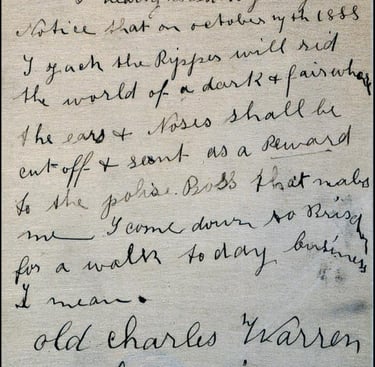 Notice that on october 17th 1888
I yack the Ripper will rid
the world of a dark & fair whore
the ears & Noses shall be
cut off & sent as a Reward
to the polise Boss that nabs
me I come down to
for a walk today business
I mean.
old Charles Warren